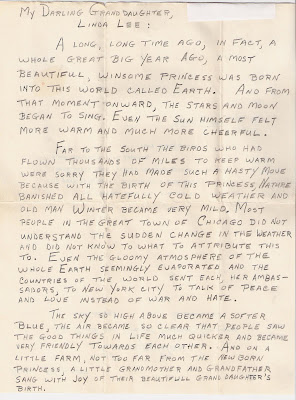 My Darling Granddaughter,
Linda Lee:
A long, long time ago, in fact, a
whole great big year ago, a most
beautiful, winsome princess was born
into this world called Earth. And from
that moment onward, the stars and moon
began to sing. Even the sun himself felt
more warm and much more cheerful.
Far to the south the birds who had
flown thousands of miles to keep warm
were sorry they had made such a hasty move
because with the birth of this princess, Nature
banished all hatefully cold weather and
old man Winter became very mild. Most
people in the great town of Chicago did not
understand the sudden change in the weather
and did not know to what to attribute this
to. Even the gloomy atmosphere of the
whole Earth seemingly evaporated and the
countries of the world sent each, her ambas-
sadors, to New York City to talk of peace
and love instead of war and hate.
The sky so high above became a softer
blue, the air became so clear that people saw
the good things in life much quicker and became
very friendly towards each other. And on a
little farm, not too far from the new born
princess, a little grandmother and grandfather
sang with joy of their beautifull granddaughter's
birth.